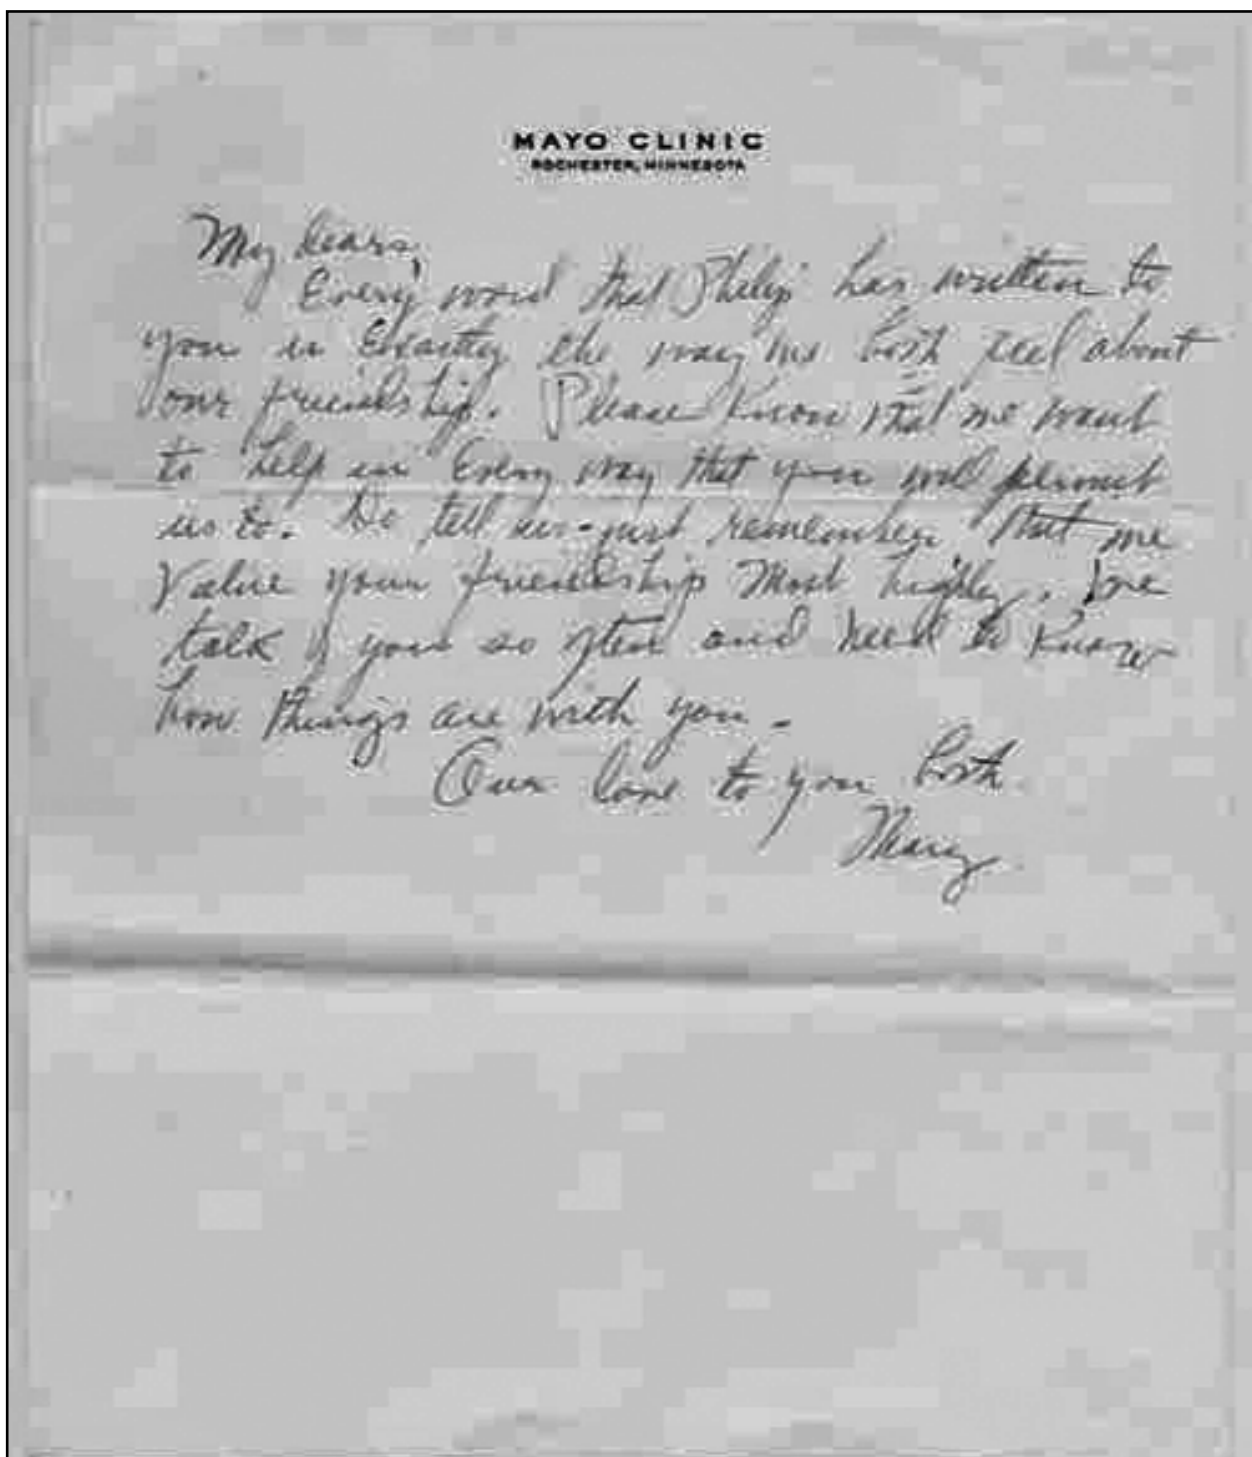 MAYO CLINIC
ROCHESTER, MINNESOTA
My dears,
Every word that Philip has written to
you is exactly the way we both feel about
our friendship. Please know that we want
to help in every way that you will permit
us to. Do tell us - just remember that we
value your friendship most highly. We
talk of you so often and need to know
how things are with you -
Our love to you both.
Mary